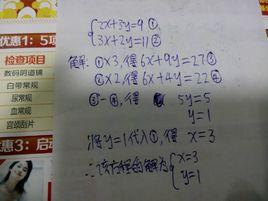 {2x+3y=9 ①
3x+2y=11 ②
解: ①×3, 得 6x+9y=27 ③
②×2, 得 6x+4y=22 ④
③-④, 得 5y=5
y=1
将 y=1 代入 ①, 得 x=3
∴ 该方程的解为 {x=3
y=1
优惠1: 5项
检查项目
数码阴道镜
白带常规
尿常规
血常规
宫颈刮片
优惠3: 启动